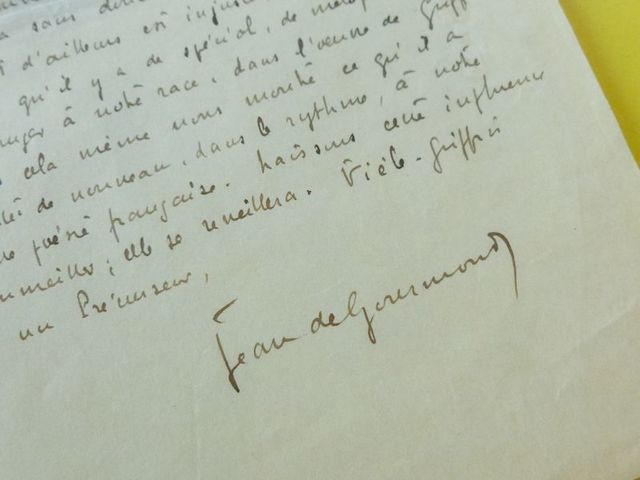 sans dou
d'ailleurs est injus
qu'il y a de spécial, de mélo
nger à notre race, dans l'œuvre de Griff
cela même nous montre ce qu'il a
té de nouveau, dans le rythme, à notre
poésie française. Laissons cette influence
mmeiller ; elle se réveillera. Vielé-Griffin
un Précurseur,
Jean de Gourmont